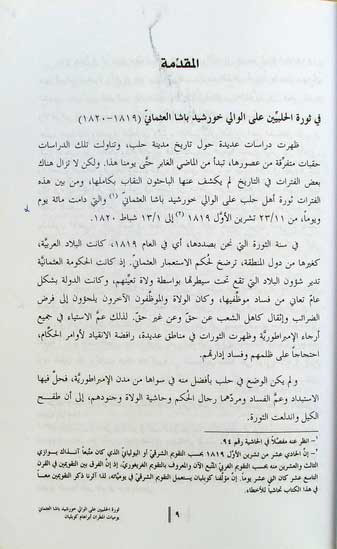 المقدّمة
في ثورة الحلبيّين على الوالي خورشيد باشا العثمانيّ (١٨١٩-١٨٢٠)
ظهرت دراسات عديدة حول تاريخ مدينة حلب، وتناولت تلك الدراسات
حقبات متفرّقة من عصورها، تبدأ من الماضي الغابر حتّى يومنا هذا. ولكن لا تزال هناك
بعض الفترات في التاريخ لم يكشف عنها الباحثون النقاب بكاملها، ومن بين هذه
الفترات ثورة أهل حلب على الوالي خورشيد باشا العثمانيّ (١) والتي دامت مائة يوم
ويوماً، من ٢٣/١١ تشرين الأوّل ١٨١٩ (٢) إلى ١٣/١ شباط ١٨٢٠.
في سنة الثورة التي نحن بصددها، أي في العام ١٨١٩، كانت البلاد العربيّة،
كغيرها من دول المنطقة، ترضخ لحُكم الاستعمار العثمانيّ. إذ كانت الحكومة العثمانيّة
تدير شؤون البلاد التي تقع تحت سيطرتها بواسطة ولاة تعيّنهم، وكانت الدولة بشكل
عامّ تعاني من فساد موظّفيها، وكان الولاة والموظّفون الآخرون يلجؤون إلى فرض
الضرائب وإثقال كاهل الشعب عن حقّ وعن غير حقّ. لذلك عمّ الاستياء في جميع
أرجاء الإمبراطوريّة وظهرت الثورات في مناطق عديدة، رافضة الانقياد لأوامر الحكّام،
احتجاجاً على ظلمهم وفساد إدارتهم.
ولم يكن الوضع في حلب بأفضل منه في سواها من مدن الإمبراطوريّة، فحلّ فيها
الاستبداد وعمّ الفساد ومردّهما رجال الحكم وحاشية الولاة وجنودهم، إلى أن طفح
الكيل واندلعت الثورة.
١- انظر عنه مفصّلاً في الحاشية رقم ٩٤.
٢- إنّ الحادي عشر من تشرين الأوّل ١٨١٩ بحسب التقويم الشرقيّ أو اليوليانيّ الذي كان متّبعاً آنذاك يـوازي
الثالث والعشرين منه بحسب التقويم الغربيّ المتّبع الآن والمعروف بالتقويم الغريغوريّ. إذ إنّ الفرق بين التقويمين في القرن
التاسع عشر كان اثني عشر يوماً. إنّ مؤلّفنا كوبليان يستعمل التقويم الشرقيّ في يوميّاته. لذا آثرنا ذكر التقويمين معاً
في هذا الكتاب تحاشياً للأخطاء.
٩
ثورة الحلبيين على الوالي خورشيد باشا العثماني
يوميات المطران أبراهام كوبليان